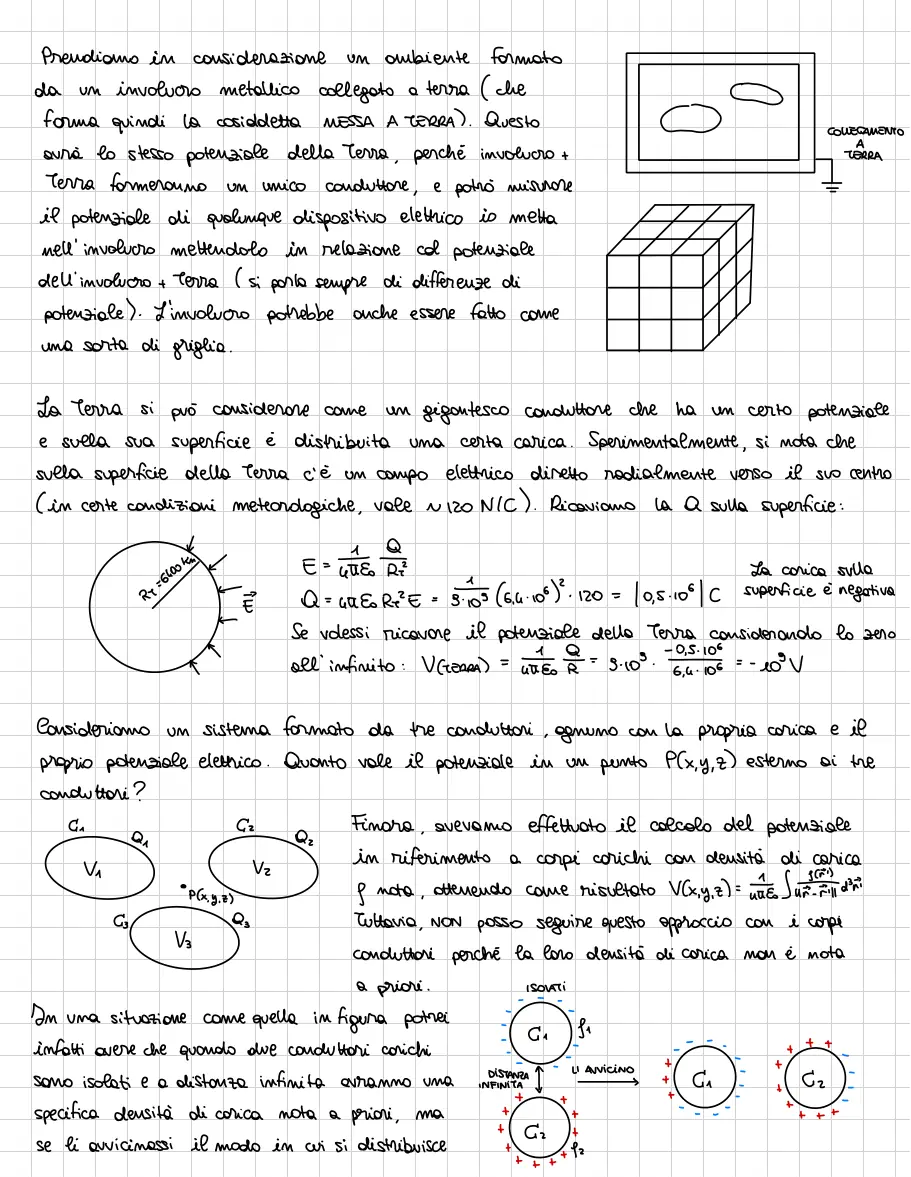 Prendiamo in considerazione un ambiente formato
da un involucro metallico collegato a terra (che
forma quindi la cosiddetta MESSA A TERRA). Questo
avrà lo stesso potenziale della Terra, perché involucro +
Terra formeranno un unico conduttore, e potrò misurare
il potenziale di qualunque dispositivo elettrico io metta
nell'involucro mettendolo in relazione col potenziale
dell'involucro + Terra (si parla sempre di differenze di
potenziale). L'involucro potrebbe anche essere fatto come
una sorta di griglia.
COLLEGAMENTO
A
TERRA
La Terra si può considerare come un gigantesco conduttore che ha un certo potenziale
e sulla sua superficie è distribuita una certa carica. Sperimentalmente, si nota che
sulla superficie della Terra c'è un campo elettrico diretto radialmente verso il suo centro
(in certe condizioni meteorologiche, vale ~120 N/C). Ricaviamo la Q sulla superficie:
R_T=6400 km
E⃗
E = 1/(4πε₀) Q/R_T²
Q = 4πε₀ R_T² E = 1/(9·10⁹) (6,4·10⁶)² · 120 = |0,5·10⁶| C
La carica sulla
superficie è negativa
Se volessi ricavare il potenziale della Terra considerando lo zero
all'infinito: V(TERRA) = 1/(4πε₀) Q/R = 9·10⁹ · (-0,5·10⁶)/(6,4·10⁶) = -10⁹ V
Consideriamo un sistema formato da tre conduttori, ognuno con la propria carica e il
proprio potenziale elettrico. Quanto vale il potenziale in un punto P(x,y,z) esterno ai tre
conduttori?
C₁ Q₁ V₁
C₂ Q₂ V₂
P(x,y,z)
C₃ Q₃ V₃
Finora, avevamo effettuato il calcolo del potenziale
in riferimento a corpi carichi con densità di carica
ρ nota, ottenendo come risultato V(x,y,z) = 1/(4πε₀) ∫ ρ(r⃗')/||r⃗-r⃗'|| d³r⃗'
Tuttavia, NON posso seguire questo approccio con i corpi
conduttori perché la loro densità di carica non è nota
a priori.
In una situazione come quella in figura potrei
infatti avere che quando due conduttori carichi
sono isolati e a distanza infinita avranno una
specifica densità di carica nota a priori, ma
se li avvicinassi il modo in cui si distribuisce
ISOLATI
C₁ ρ₁
DISTANZA
INFINITA
C₂ ρ₂
LI AVVICINO
C₁
C₂